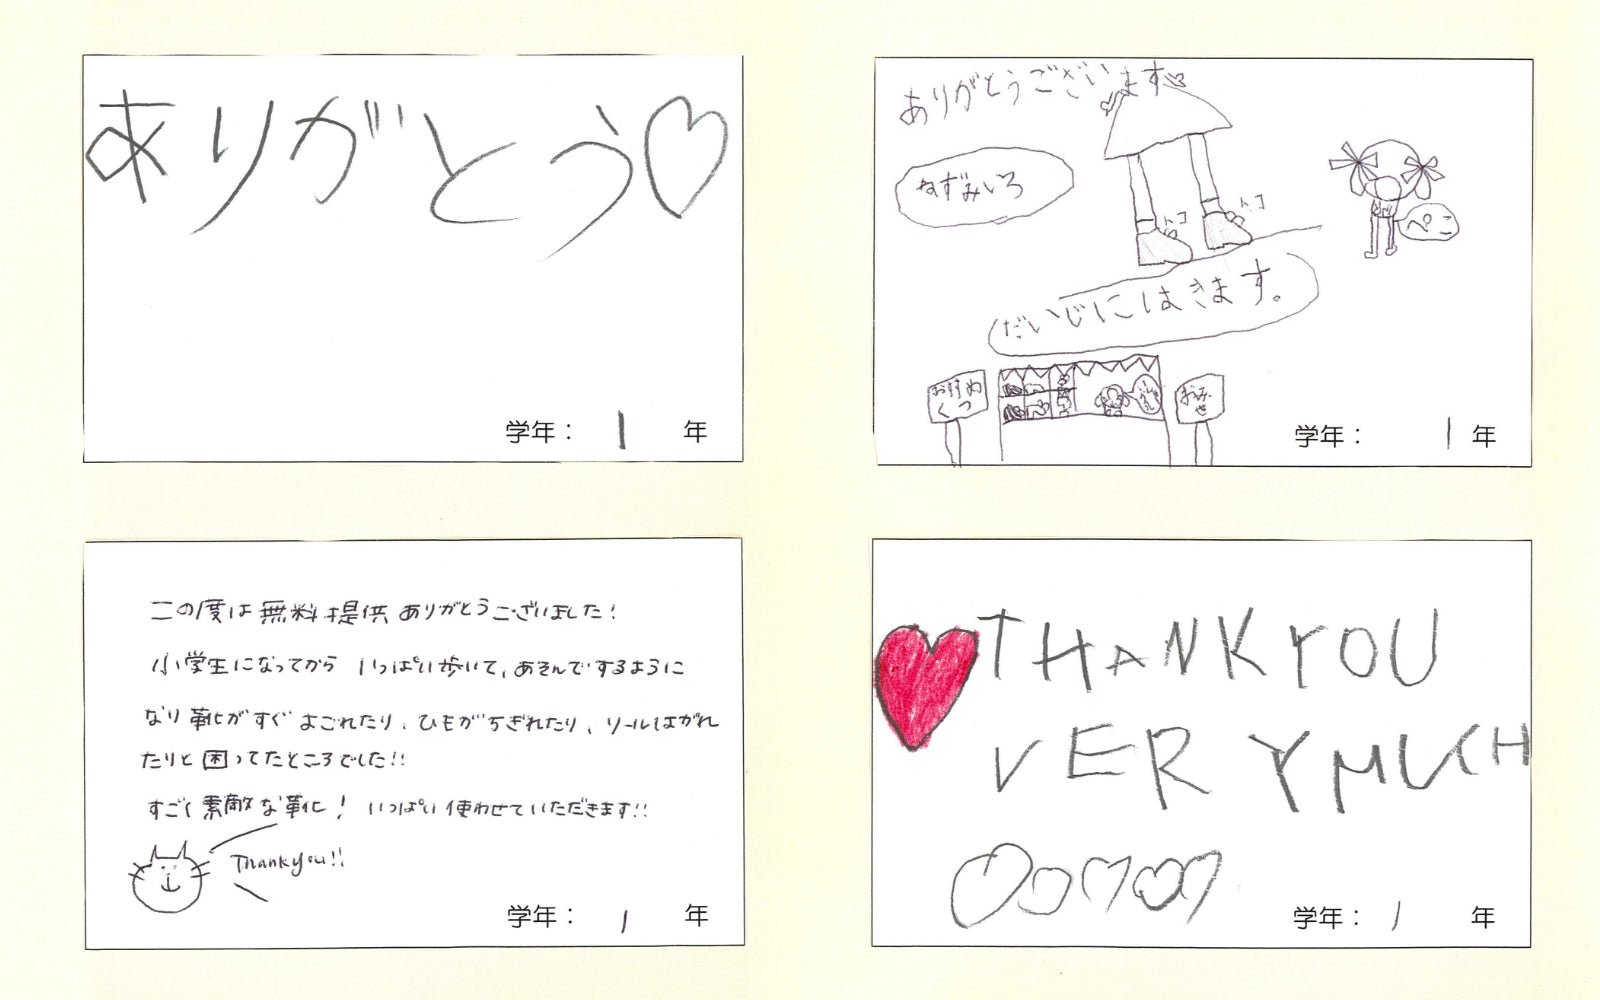 ありがとう
学年： 1 年
ありがとうございます
ねずみいろ
トコ
トコ
ぺこ
だいじにはきます。
おすすめ
くつ
おみ
せ
学年： 1 年
この度は無料提供ありがとうございました!
小学生になってから いっぱい歩いて、あそんでするように
なり 靴がすぐ よごれたり、ひもがちぎれたり、ソールはがれ
たりと困ってたところでした!!
すごく素敵な靴! いっぱい使わせていただきます!!
Thankyou!!
学年： 1 年
THANKYOU
VERYMUCH
学年： 1 年